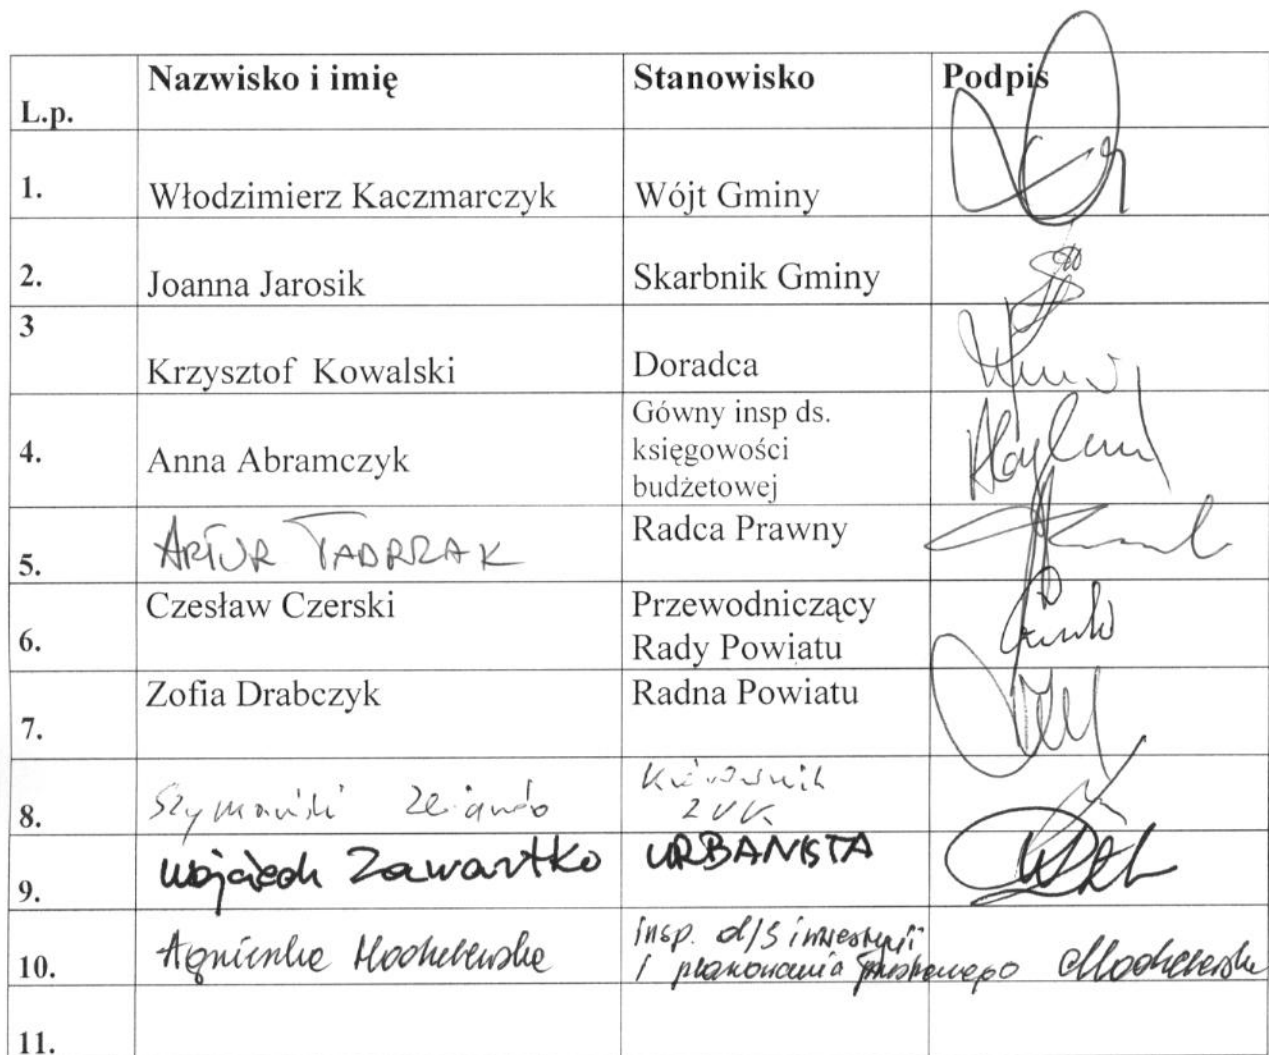 L.p. Nazwisko i imię Stanowisko Podpis
1. Włodzimierz Kaczmarczyk Wójt Gminy
2. Joanna Jarosik Skarbnik Gminy
3 Krzysztof Kowalski Doradca
4. Anna Abramczyk Gówny insp ds.
księgowości
budżetowej
5. ARTUR TADRZAK Radca Prawny
6. Czesław Czerski Przewodniczący
Rady Powiatu
7. Zofia Drabczyk Radna Powiatu
8. Szymański Kierownik
ZUK
9. Wojciech Zawartko URBANISTA
10. Agnieszka insp. d/s inwestycji
i planowania
11.